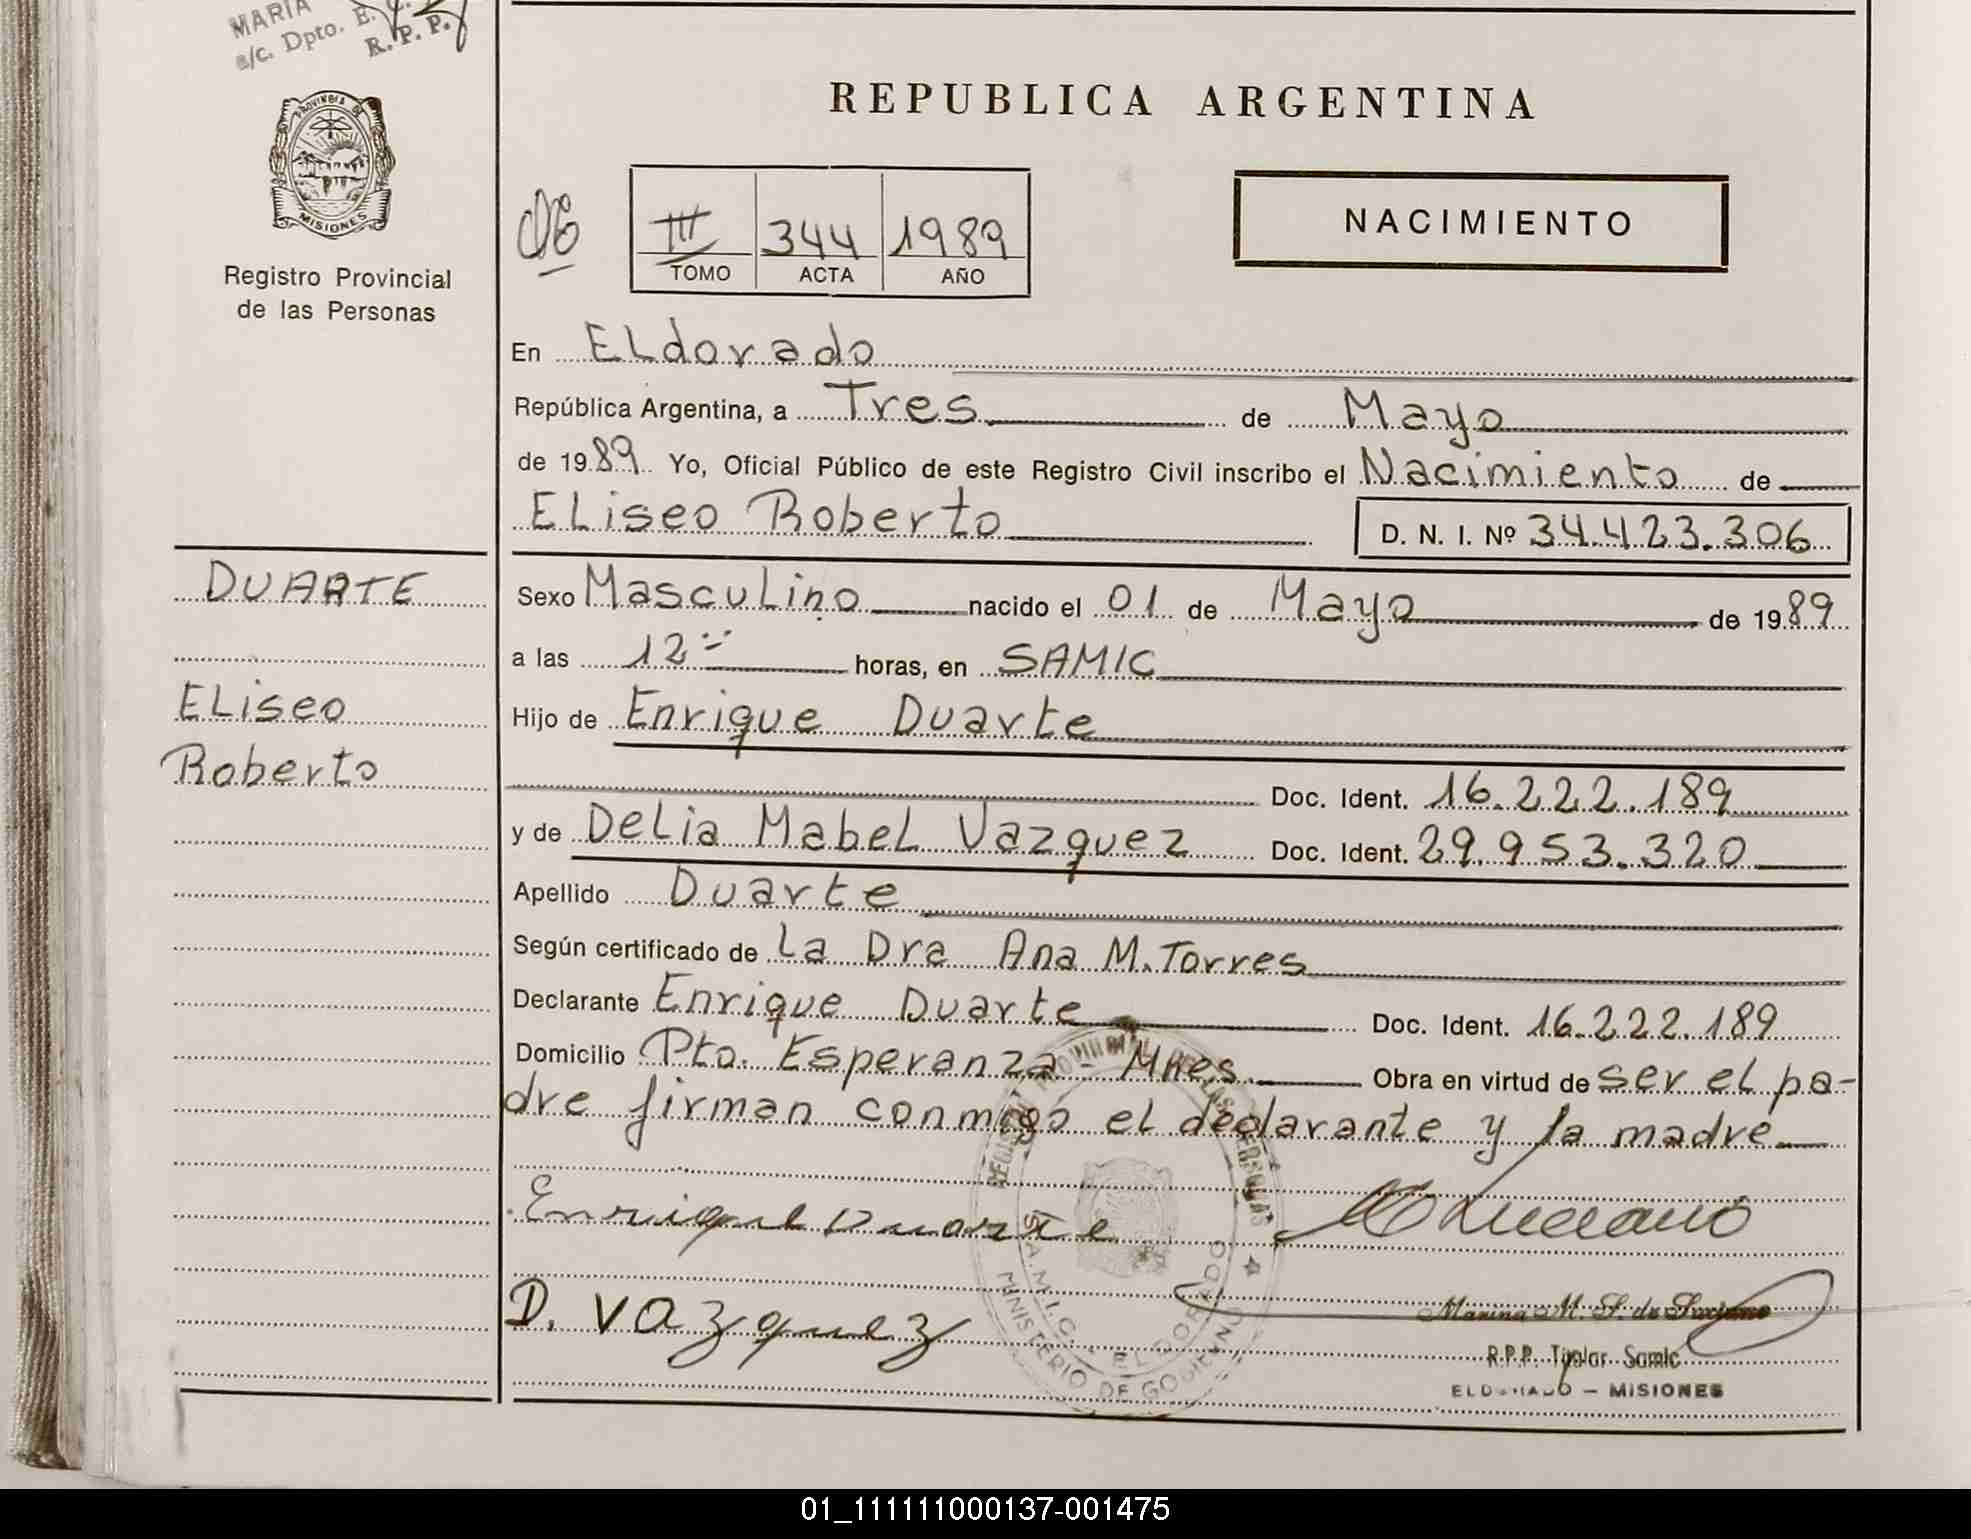 MARIA
a/c. Dpto. E. C.
R. P. P.
PROVINCIA DE
MISIONES
Registro Provincial
de las Personas
REPUBLICA ARGENTINA
III 344 1989
TOMO ACTA AÑO
NACIMIENTO
En Eldorado
República Argentina, a Tres de Mayo
de 1989 Yo, Oficial Público de este Registro Civil inscribo el Nacimiento de
Eliseo Roberto D. N. I. Nº 34.423.306
DUARTE
Eliseo
Roberto
Sexo Masculino nacido el 01 de Mayo de 1989
a las 12 horas, en SAMIC
Hijo de Enrique Duarte
Doc. Ident. 16.222.189
y de Delia Mabel Vazquez Doc. Ident. 29.953.320
Apellido Duarte
Según certificado de La Dra Ana M. Torres
Declarante Enrique Duarte Doc. Ident. 16.222.189
Domicilio Pto. Esperanza - Mnes. Obra en virtud de ser el pa-
dre firman conmigo el declarante y la madre
Enrique Duarte
D. Vazquez
S.A.M.I.C. - ELDORADO
MINISTERIO DE GOBIERNO
Marina M. S. de Luciano
R.P.P. Titular Samic
ELDORADO - MISIONES
01_111111000137-001475